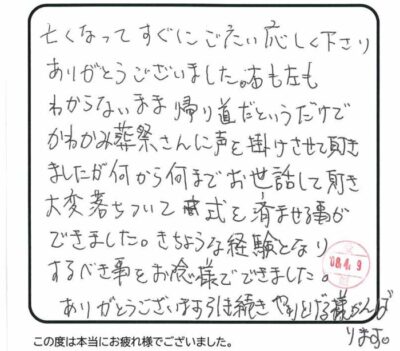 亡くなってすぐにごたい応して下さり
ありがとうございました。右も左も
わからないまま帰り道だというだけで
かわかみ葬祭さんに声を掛けさせて頂き
ましたが何から何までお世話して頂き
大変落ちついて式を済ませる事が
できました。きちょうな経験となり
するべき事をお念様でできました。
ありがとうございます引き続き
ります。
この度は本当にお疲れ様でございました。